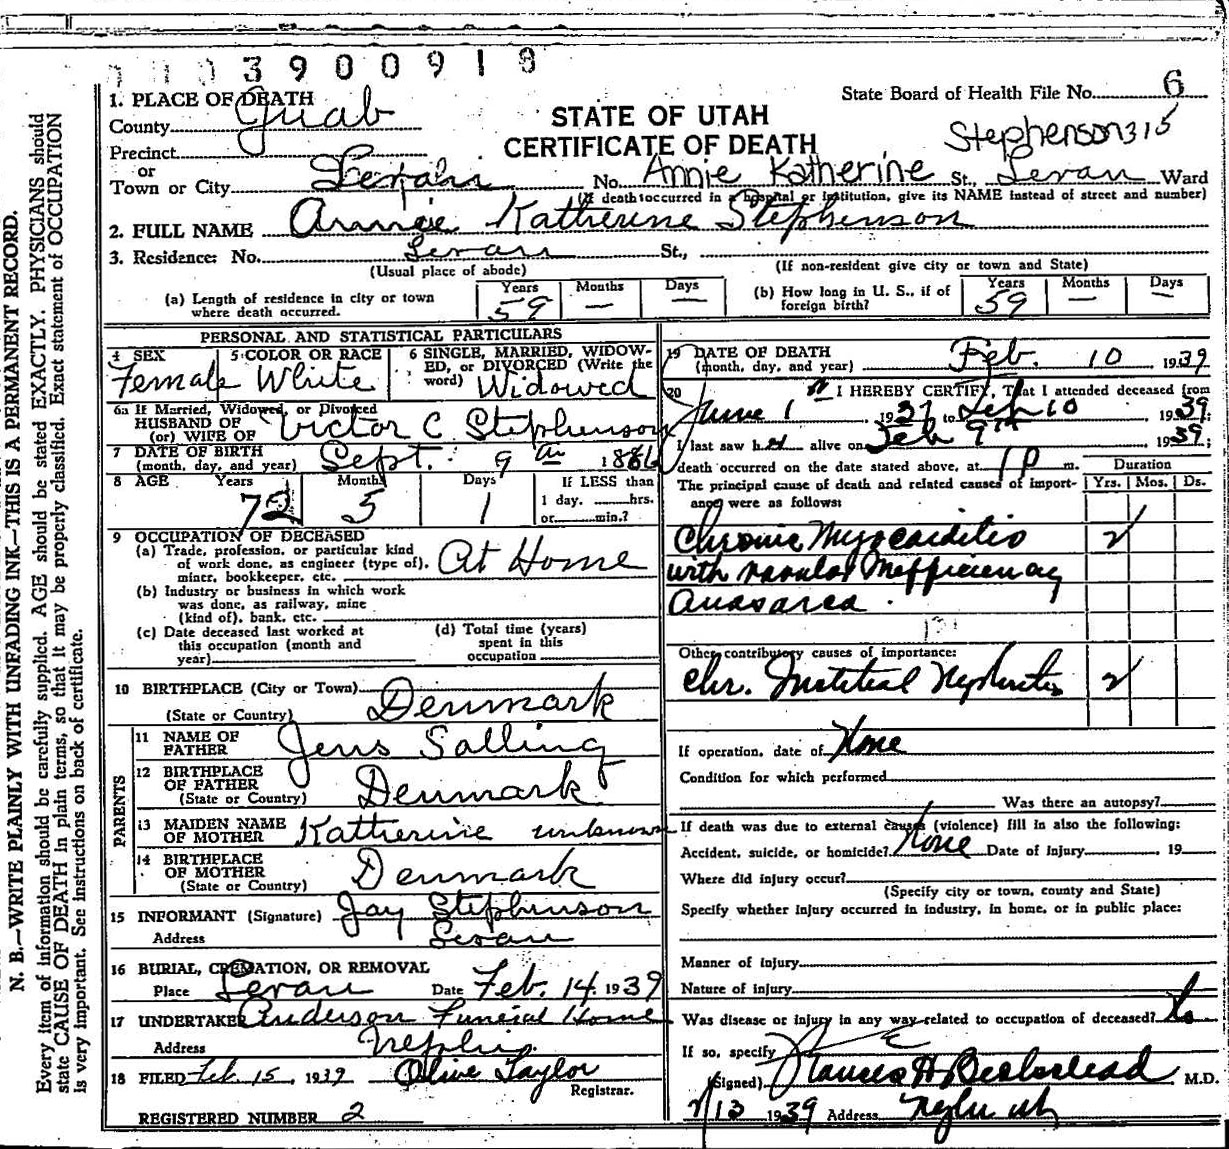 3900918
State Board of Health File No. 6
1. PLACE OF DEATH
STATE OF UTAH
CERTIFICATE OF DEATH
Stephenson 315
County Juab
Precinct
or
Town or City Levan No. Annie Katherine St., Levan Ward
(If death occurred in a hospital or institution, give its NAME instead of street and number)
2. FULL NAME Annie Katherine Stephenson
3. Residence: No. Levan St.,
(Usual place of abode) (If non-resident give city or town and State)
(a) Length of residence in city or town where death occurred. Years 59 Months — Days —
(b) How long in U. S., if of foreign birth? Years 59 Months — Days —
PERSONAL AND STATISTICAL PARTICULARS
4 SEX Female
5 COLOR OR RACE White
6 SINGLE, MARRIED, WIDOWED, or DIVORCED (Write the word) Widowed
6a If Married, Widowed, or Divorced
HUSBAND OF
(or) WIFE OF Victor C Stephenson
7 DATE OF BIRTH
(month, day, and year) Sept. 9 1866
8 AGE Years 72 Months 5 Days 1
If LESS than
1 day, hrs.
or min.?
9 OCCUPATION OF DECEASED
(a) Trade, profession, or particular kind
of work done, as engineer (type of), At Home
miner, bookkeeper, etc.
(b) Industry or business in which work
was done, as railway, mine
(kind of), bank, etc.
(c) Date deceased last worked at
this occupation (month and
year)
(d) Total time (years)
spent in this
occupation
10 BIRTHPLACE (City or Town)
(State or Country) Denmark
PARENTS
11 NAME OF
FATHER Jens Salling
12 BIRTHPLACE
OF FATHER
(State or Country) Denmark
13 MAIDEN NAME
OF MOTHER Katherine unknown
14 BIRTHPLACE
OF MOTHER
(State or Country) Denmark
15 INFORMANT (Signature) Jay Stephenson
Address Levan
16 BURIAL, CREMATION, OR REMOVAL
Place Levan Date Feb. 14, 1939
17 UNDERTAKER Anderson Funeral Home
Address Nephi
18 FILED Feb 15, 1939 Olive Taylor
Registrar.
REGISTERED NUMBER 2
19 DATE OF DEATH
(month, day, and year) Feb. 10 1939
20 I HEREBY CERTIFY, That I attended deceased from
June 1 1937 to Feb 10 1939;
I last saw her alive on Feb 9th 1939;
death occurred on the date stated above, at 1 P m.
Duration
The principal cause of death and related causes of importance were as follows: Yrs. Mos. Ds.
Chronic Myocarditis 2
with Inefficiency
Anasarca.
Other contributory causes of importance:
Chr. Nephritis 2
If operation, date of None
Condition for which performed
Was there an autopsy?
If death was due to external causes (violence) fill in also the following:
Accident, suicide, or homicide? None Date of injury , 19
Where did injury occur?
(Specify city or town, county and State)
Specify whether injury occurred in industry, in home, or in public place:
Manner of injury
Nature of injury
Was disease or injury in any way related to occupation of deceased? No
If so, specify
(Signed) M.D.
2/13 1939 Address
N. B.—WRITE PLAINLY WITH UNFADING INK—THIS IS A PERMANENT RECORD.
Every item of information should be carefully supplied. AGE should be stated EXACTLY. PHYSICIANS should
state CAUSE OF DEATH in plain terms, so that it may be properly classified. Exact statement of OCCUPATION
is very important. See instructions on back of certificate.